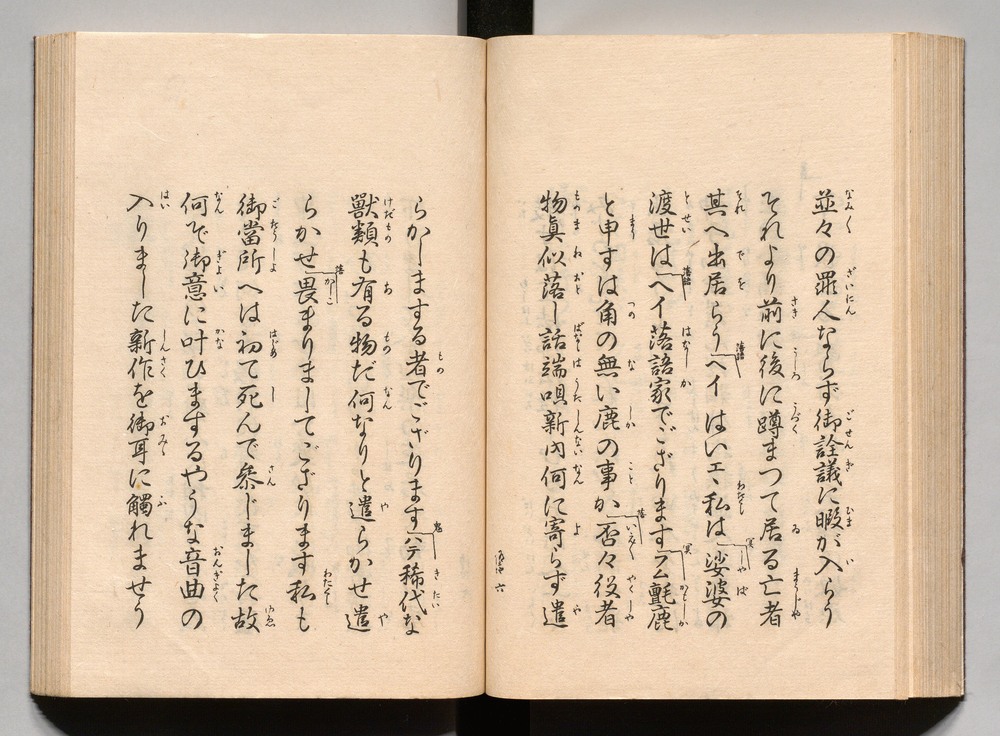 並々の罪人ならず御詮議に暇が入らう
それより前に後に蹲まつて居る亡者
其へ出居らうヘイはいエヽ私は娑婆の
渡世はヘイ落語家でござりますフム氈鹿
と申すは角の無い鹿の事か否々役者
物眞似落し話端唄新内何に寄らず遣
六
らかしまする者でござりますハテ稀代な
獸類も有る物だ何なりと遣らかせ遣
らかせ畏まりましてござります私も
御當所へは初て死んで參じました故
何で御意に叶ひまするやうな音曲の
入りました新作を御耳に觸れませう